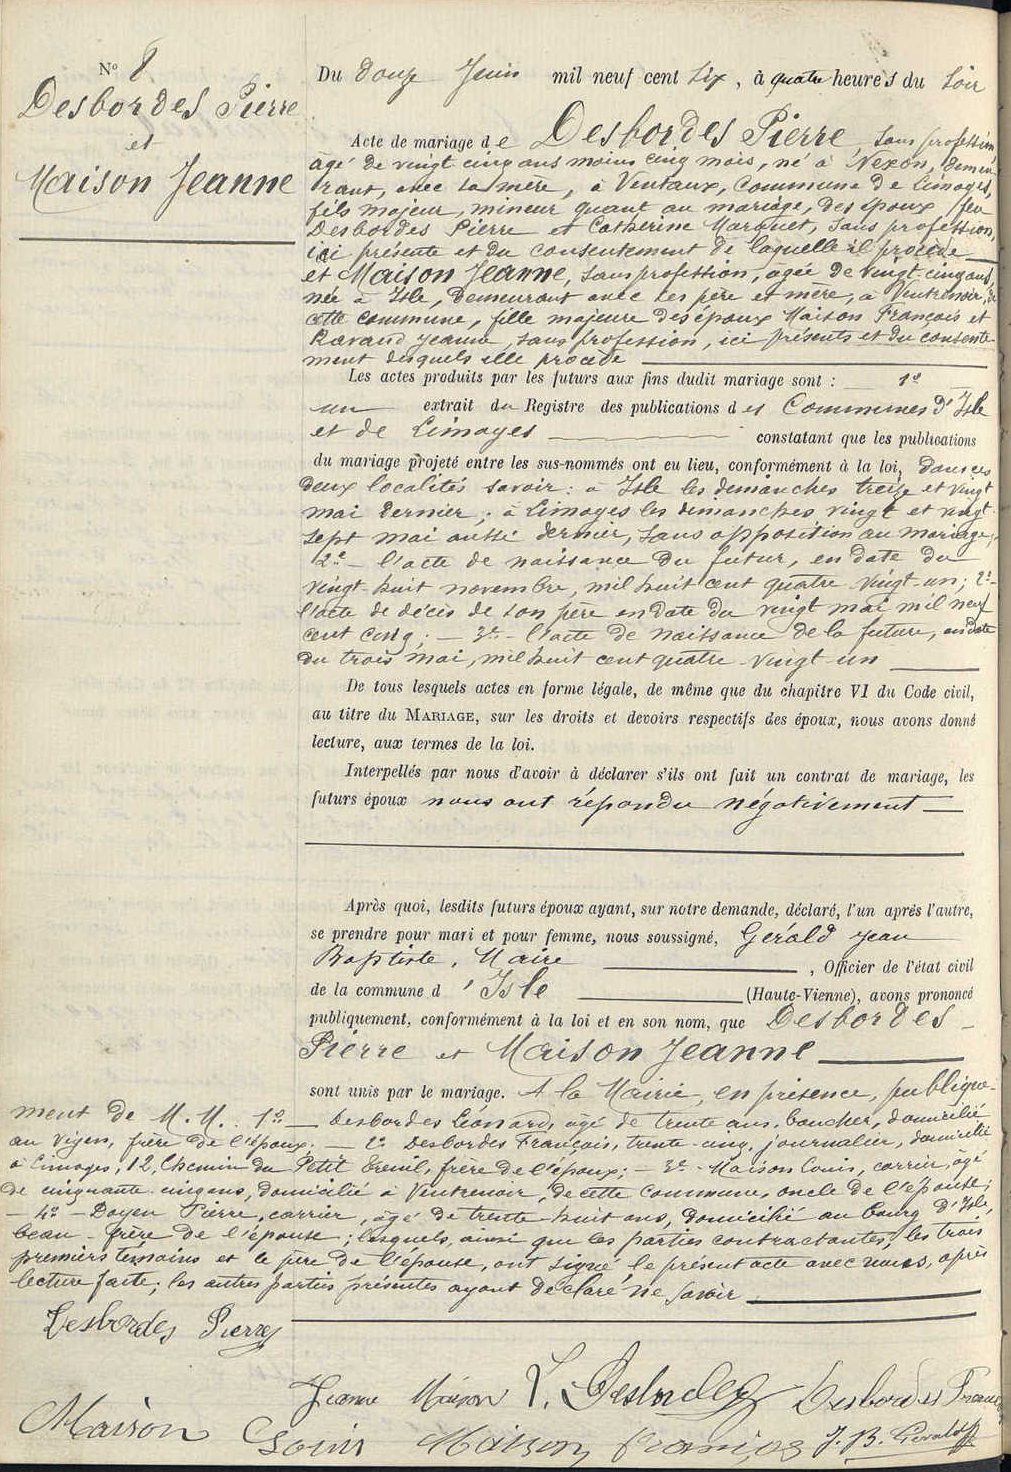 N° 8
Desbordes Pierre
et
Maison Jeanne
Du douze Juin mil neuf cent six, à quatre heures du soir
Acte de mariage de Desbordes Pierre, sans profession
âgé de vingt cinq ans moins cinq mois, né à Nexon, demeu-
rant, avec sa mère, à Ventaux, Commune de Limoges,
fils majeur, mineur quant au mariage, des époux feu
Desbordes Pierre et Catherine Marquet, sans profession,
ici présente et du consentement de laquelle il procède
et Maison Jeanne, sans profession, âgée de vingt cinq ans,
née à Isle, demeurant avec ses père et mère, à Ventenoir, de
cette commune, fille majeure des époux Maison François et
Ravaud Jeanne, sans profession, ici présents et du consente-
ment desquels elle procède
Les actes produits par les futurs aux fins dudit mariage sont : 1°
un extrait du Registre des publications des Communes d'Isle
et de Limoges constatant que les publications
du mariage projeté entre les sus-nommés ont eu lieu, conformément à la loi, dans ces
deux localités savoir : à Isle les dimanches treize et vingt
mai dernier ; à Limoges les dimanches vingt et vingt-
sept mai aussi dernier, sans opposition au mariage ;
2° - l'acte de naissance du futur, en date du
vingt-huit novembre, mil huit cent quatre-vingt-un ; 2° -
l'acte de décès de son père en date du vingt mai mil neuf
cent cinq ; - 3° - l'acte de naissance de la future, en date
du trois mai, mil huit cent quatre-vingt-un
De tous lesquels actes en forme légale, de même que du chapitre VI du Code civil,
au titre du MARIAGE, sur les droits et devoirs respectifs des époux, nous avons donné
lecture, aux termes de la loi.
Interpellés par nous d'avoir à déclarer s'ils ont fait un contrat de mariage, les
futurs époux nous ont répondu négativement
Après quoi, lesdits futurs époux ayant, sur notre demande, déclaré, l'un après l'autre,
se prendre pour mari et pour femme, nous soussigné, Gérald Jean
Baptiste, Maire, Officier de l'état civil
de la commune d'Isle (Haute-Vienne), avons prononcé
publiquement, conformément à la loi et en son nom, que Desbordes
Pierre et Maison Jeanne
sont unis par le mariage. A la Mairie, en présence, publique-
ment de M.M. 1° - Desbordes Léonard, âgé de trente ans, boucher, domicilié
au Vigen, frère de l'époux ; - 2° Desbordes François, trente-cinq, journalier, domicilié
à Limoges, 12, Chemin du Petit Treuil, frère de l'époux ; - 3° - Maison Louis, carrier, âgé
de cinquante-cinq ans, domicilié à Ventenoir, de cette commune, oncle de l'épouse ;
- 4° - Doyen Pierre, carrier, âgé de trente-huit ans, domicilié au bourg d'Isle,
beau-frère de l'épouse ; lesquels, ainsi que les parties contractantes, les trois
premiers témoins et le père de l'épouse, ont signé le présent acte avec nous, après
lecture faite ; les autres parties présentes ayant déclaré ne savoir
Desbordes Pierre
Jeanne Maison L. Desbordes Desbordes Franc
Maison Louis Maison françois J. B. Gérald